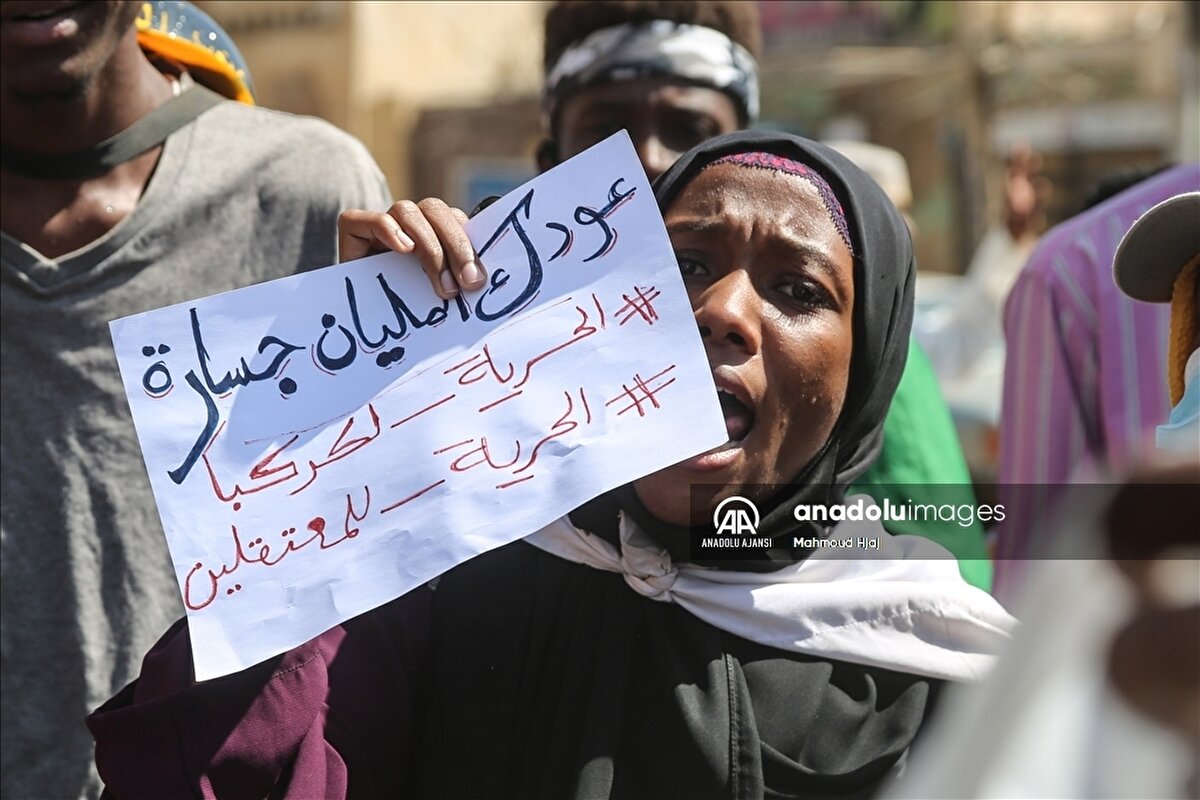 عودك امليان جسارة
#الحرية_لكركبا
#الحرية_للمعتقلين
AA
ANADOLU AJANSI
anadoluimages
Mahmoud Hjaj